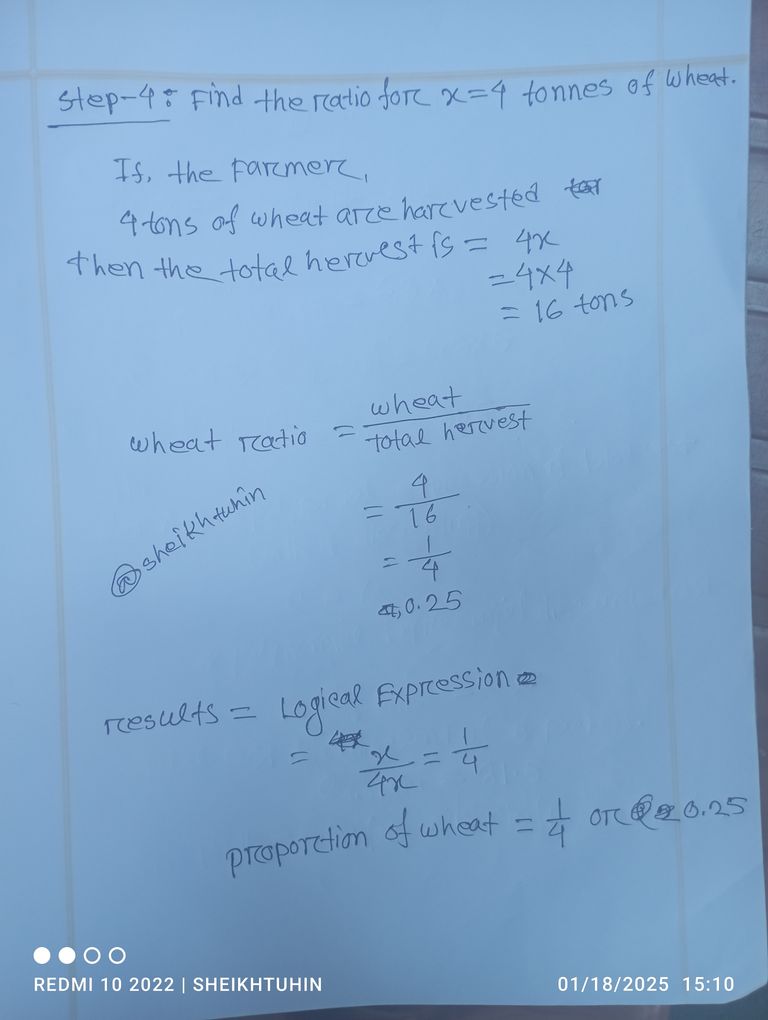 Step-4: Find the ratio for x=4 tonnes of wheat.
If, the Farmer,
4 tons of wheat are harvested
then the total hervest is = 4x
= 4×4
= 16 tons
wheat ratio = wheat / total hervest
= 4/16
= 1/4
0.25
@sheikhtuhin
results = Logical Expression
= x/4x = 1/4
proportion of wheat = 1/4 or 0.25
REDMI 10 2022 | SHEIKHTUHIN
01/18/2025 15:10